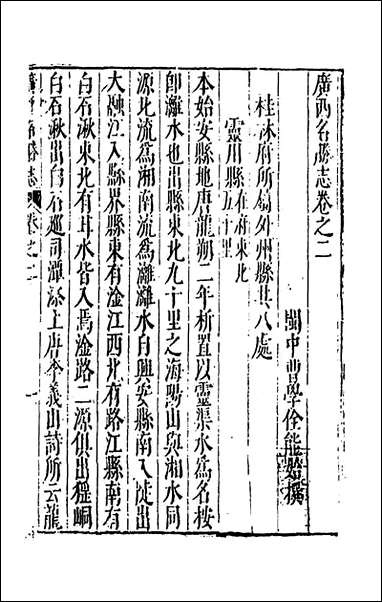 廣西名勝志卷之二
閩中曹學佺能始撰
桂林府所屬外州縣共八處
靈川縣在府東北五十里
本始安縣地唐龍朔二年析置以靈渠水為名按
即灕水也出縣東北九十里之海陽山與湘水同
源北流為湘南流為灕灕水自興安縣南入徒出
大融江入縣界縣東有淦江西北有路江縣南有
白石湫東北有甘水皆入焉淦路二源俱出猺峒
白石湫出白石巡司潭添上唐李義山詩所云龍